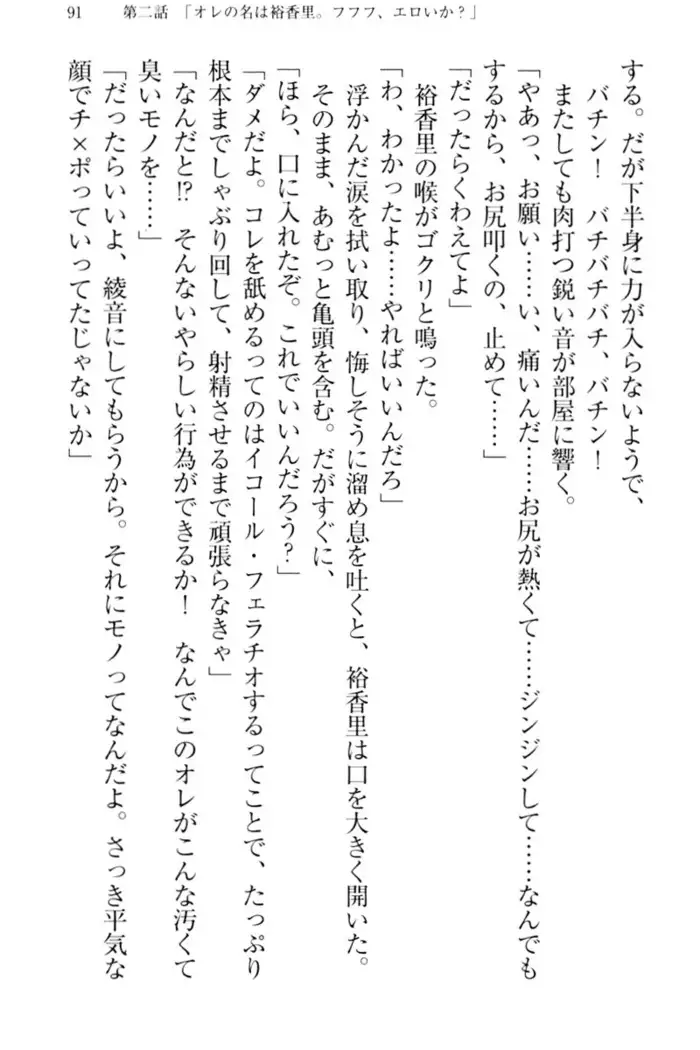 91 第二話 「オレの名は裕香里。フフフ、エロいか？」
する。だが下半身に力が入らないようで、
バチン！ バチバチバチ、バチン！
またしても肉打つ鋭い音が部屋に響く。
「やあっ、お願い……い、痛いんだ……お尻が熱くて……ジンジンして……なんでも
するから、お尻叩くの、止めて……」
「だったらくわえてよ」
裕香里の喉がゴクリと鳴った。
「わ、わかったよ……やればいいんだろ」
浮かんだ涙を拭い取り、悔しそうに溜め息を吐くと、裕香里は口を大きく開いた。
そのまま、あむっと亀頭を含む。だがすぐに、
「ほら、口に入れたぞ。これでいいんだろう？」
「ダメだよ。コレを舐めるってのはイコール・フェラチオするってことで、たっぷり
根本までしゃぶり回して、射精させるまで頑張らなきゃ」
「なんだと!? そんないやらしい行為ができるか！ なんでこのオレがこんな汚くて
臭いモノを……」
「だったらいいよ、綾音にしてもらうから。それにモノってなんだよ。さっき平気な
顔でチ×ポっていってたじゃないか」